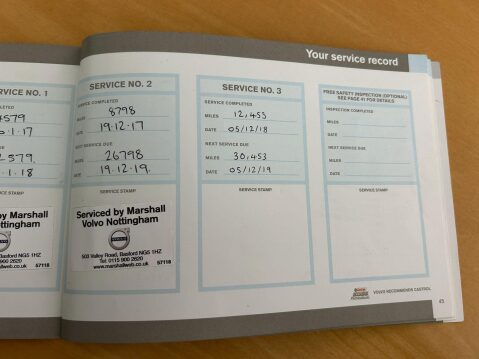 Your service record
SERVICE NO. 1
COMPLETED
4579
0.1.17
SERVICE DUE
2579.
.1.18
SERVICE STAMP
by Marshall
Nottingham
Basford NG5 1HZ
900 2620
marshallweb.co.uk 57118
SERVICE NO. 2
SERVICE COMPLETED
MILES 8798
DATE 19.12.17
NEXT SERVICE DUE
MILES 26798
DATE 19.12.19.
SERVICE STAMP
Serviced by Marshall
Volvo Nottingham
VOLVO
503 Valley Road, Basford NG5 1HZ
Tel: 0115 900 2620
www.marshallweb.co.uk 57118
SERVICE NO. 3
SERVICE COMPLETED
MILES 12,453
DATE 05/12/18
NEXT SERVICE DUE
MILES 30,453
DATE 05/12/19
SERVICE STAMP
FREE SAFETY INSPECTION (OPTIONAL)
SEE PAGE 41 FOR DETAILS
INSPECTION COMPLETED
MILES
DATE
NEXT SERVICE DUE
MILES
DATE
SERVICE STAMP
VOLVO RECOMMENDS CASTROL
43